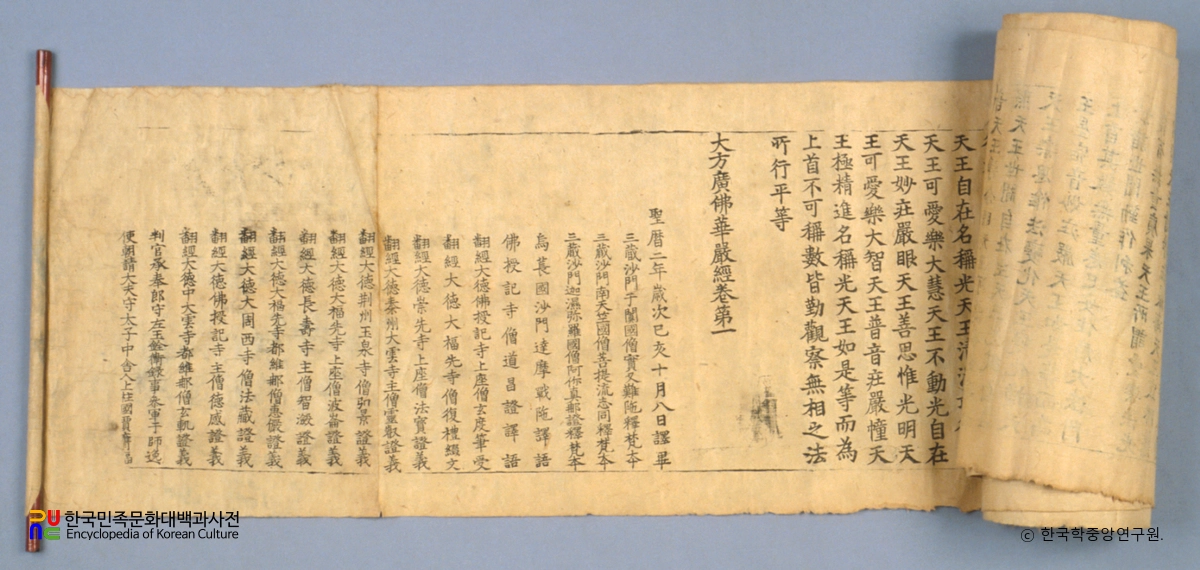 天王自在名稱光天王清淨功
天王可愛樂大慧天王不動光自在
天王妙莊嚴眼天王善思惟光明天
王可愛樂大智天王普音莊嚴幢天
王極精進名稱光天王如是等而為
上首不可稱數皆勤觀察無相之法
所行平等
大方廣佛華嚴經卷第一
聖曆二年歲次己亥十月八日譯畢
三藏沙門于闐國僧實叉難陁釋梵本
三藏沙門南天竺國僧菩提流志同釋梵本
三藏沙門迦濕弥羅國僧阿你真那證釋梵本
烏萇國沙門達摩戰陁譯語
佛授記寺僧道昌證譯語
翻經大德佛授記寺上座僧玄度筆受
翻經大德大福先寺僧復禮綴文
翻經大德崇先寺上座僧法寶證義
翻經大德秦州大雲寺主僧靈叡證義
翻經大德荆州玉泉寺僧弘景證義
翻經大德大福先寺上座僧波崙證義
翻經大德長壽寺主僧智激證義
翻經大德大福先寺都維那僧惠儼證義
翻經大德大周西寺僧法藏證義
翻經大德佛授記寺主僧德感證義
翻經大德中大雲寺都維那僧玄軌證義
判官承奉郎守左玉鈐衛録事叅軍于師逸
便朝請大夫守太子中舍人上柱國賈膺福
한국민족문화대백과사전
Encyclopedia of Korean Culture
ⓒ 한국학중앙연구원.